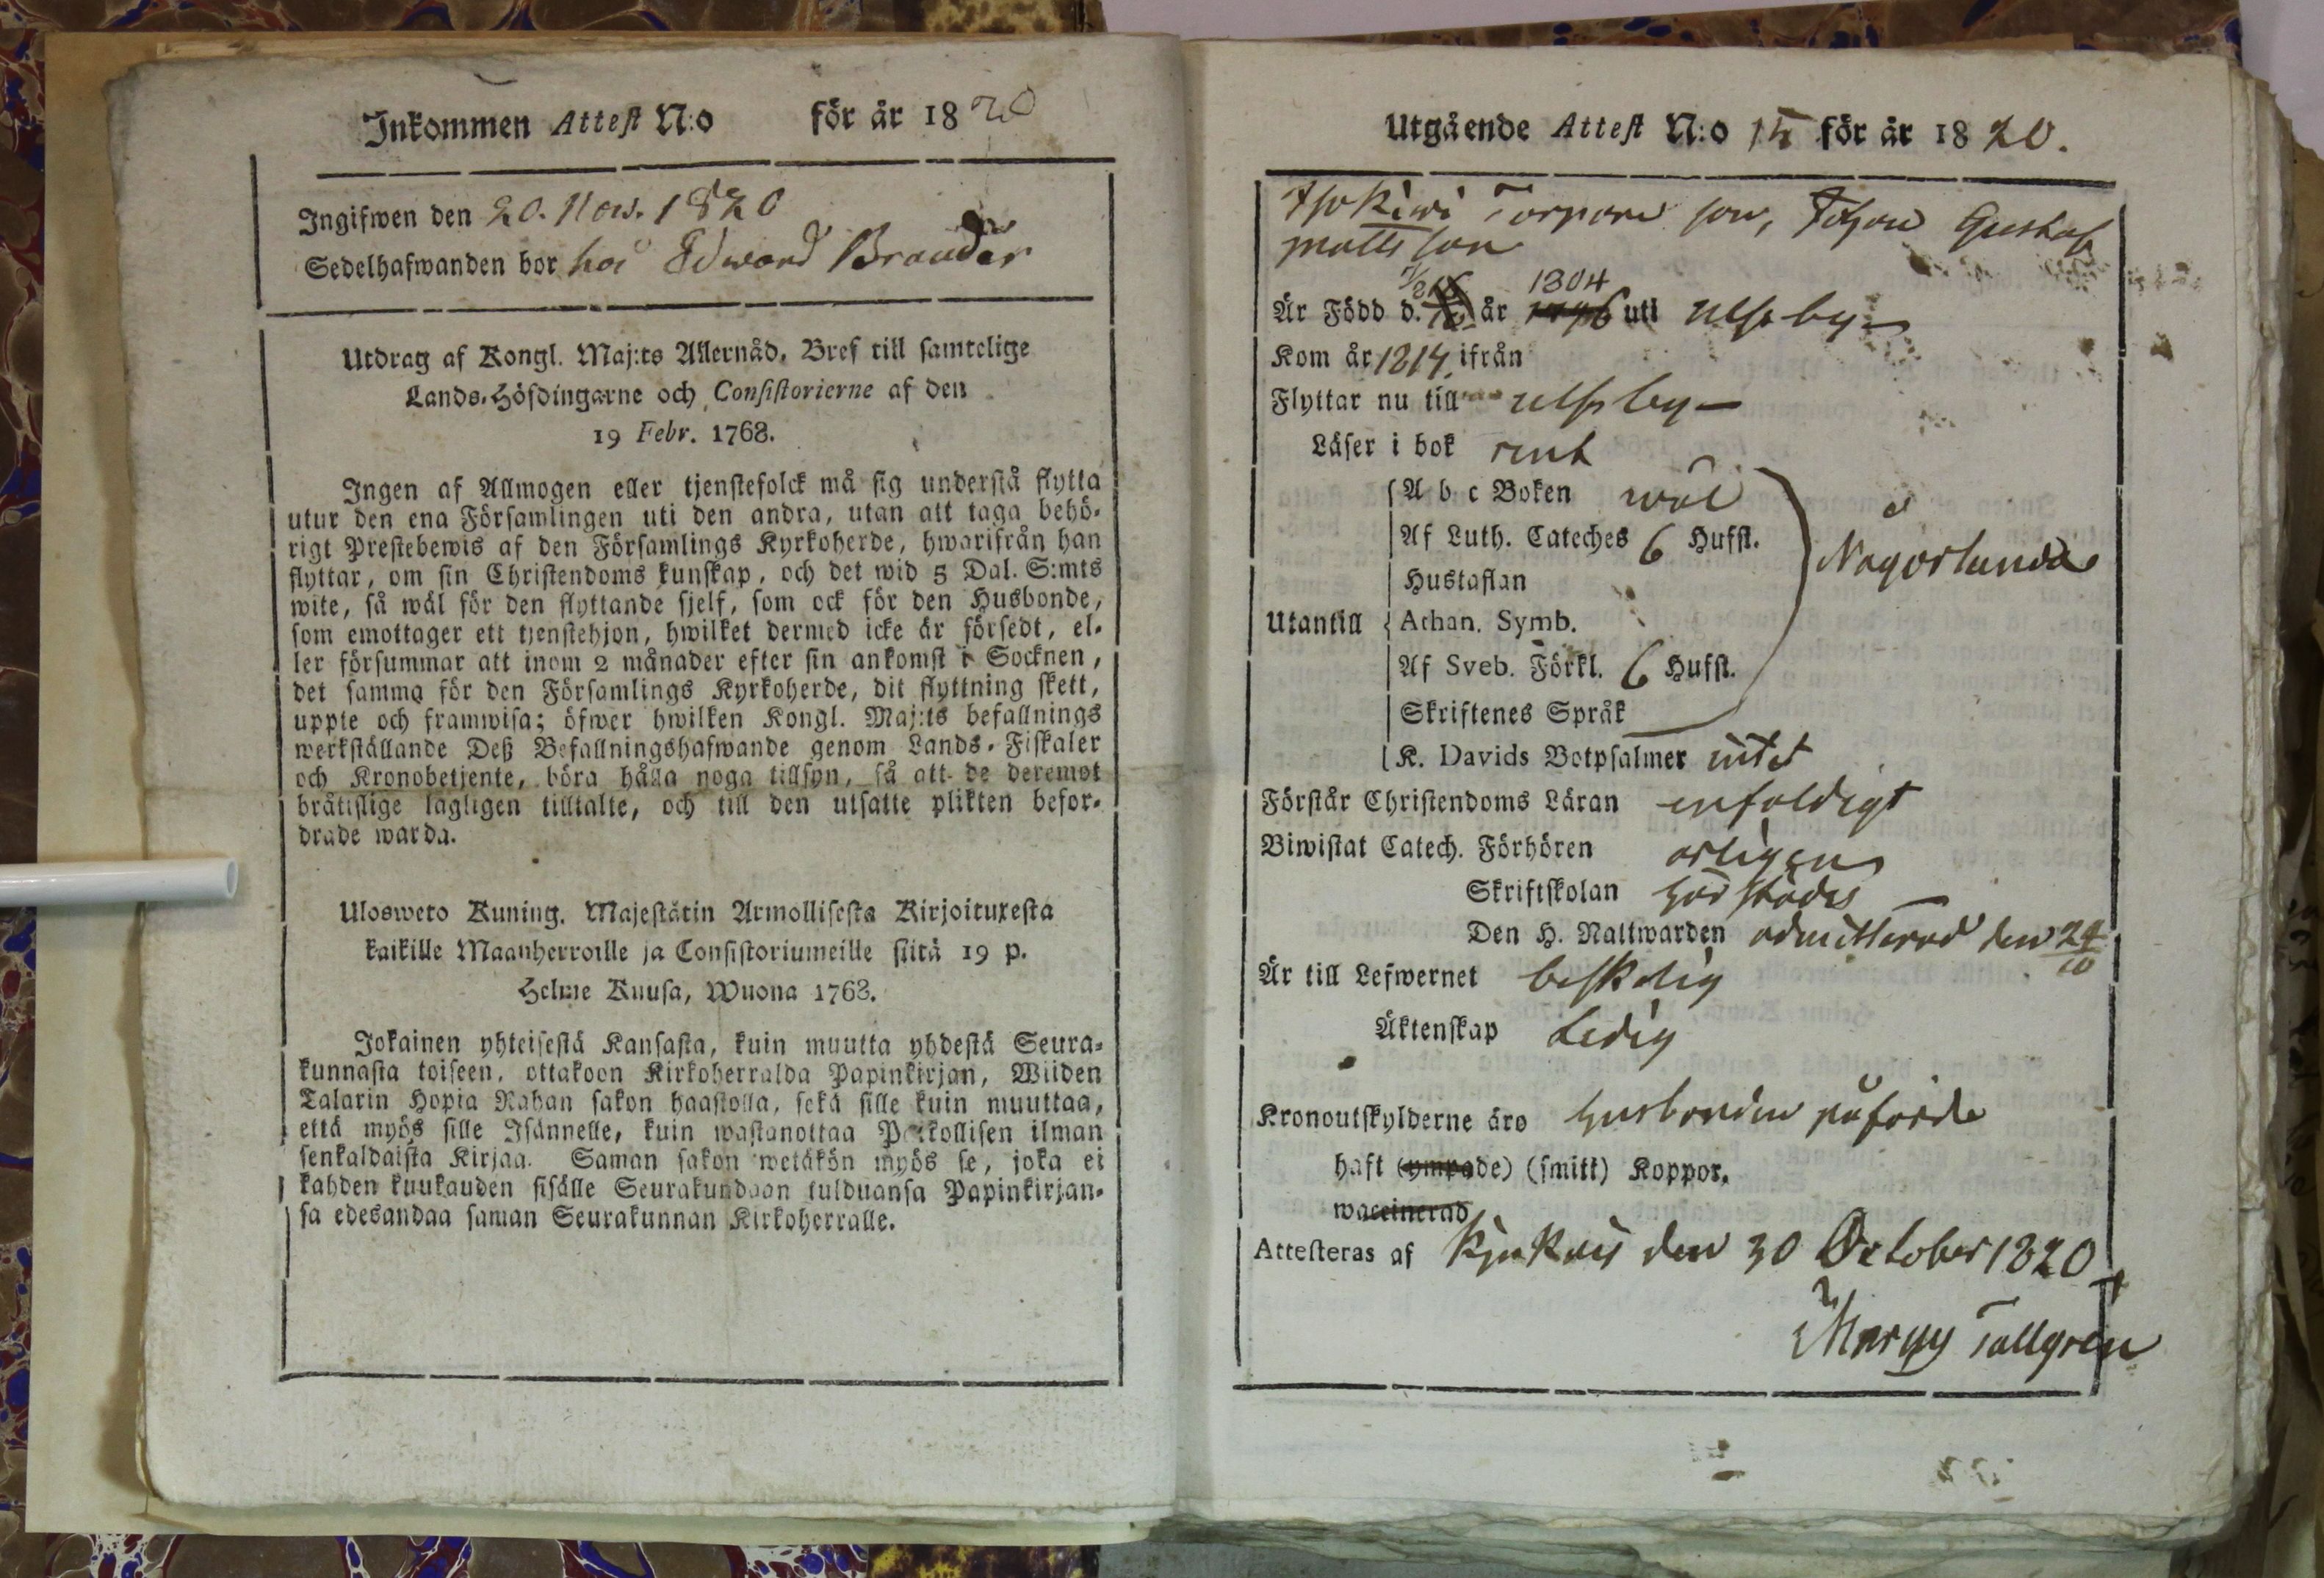 Inkommen Attest N:o för år 1820
Ingifwen den 20. Now. 1820
Sedelhafwanden bor hos Edward Brander
Utdrag af Kongl. Maj:ts Allernåd. Bref till samtelige
Lands-Höfdingarne och Consistorierne af den
19 Febr. 1768.
Ingen af Allmogen eller tjenstefolck må sig understå flytta
utur den ena Församlingen uti den andra, utan att taga behö-
rigt Prestebewis af den Församlings Kyrkoherde, hwarifrån han
flyttar, om sin Christendoms kunskap, och det wid 5 Dal. S:mts
wite, så wäl för den flyttande sjelf, som ock för den Husbonde,
som emottager ett tjenstehjon, hwilket dermed icke är försedt, el-
ler försummar att inom 2 månader efter sin ankomst i Socknen,
det samma för den Församlings Kyrkoherde, dit flyttning skett,
uppte och framwisa; öfwer hwilken Kongl. Maj:ts befallnings
werkställande Deß Befallningshafwande genom Lands-Fiskaler
och Kronobetjente, böra hålla noga tillsyn, så att de deremot
bråtislige lagligen tilltalte, och till den utsatte plikten befor-
drade warda.
Ulosweto Kuning. Majestätin Armollisesta Kirjoituxesta
kaikille Maanherroille ja Consistoriumeille siitä 19 p.
Helme Kuusa, Wuona 1768.
Jokainen yhteisestä Kansasta, kuin muutta yhdestä Seura-
kunnasta toiseen, ottakoon Kirkoherralda Papinkirjan, Wiiden
Talarin Hopia Rahan sakon haastolla, sekä sille kuin muuttaa,
että myös sille Isännelle, kuin wastanottaa Palkollisen ilman
senkaldaista Kirjaa. Saman sakon wetäkön myös se, joka ei
kahden kuukauden sisälle Seurakundaan tulduansa Papinkirjan-
sa edesandaa saman Seurakunnan Kirkoherralle.
Utgående Attest N:o 15 för år 1820.
Torpare son, Gustaf
Matts son
Är Född d. år 1804 uti Ulfsby
Kom år 1814 ifrån
Flyttar nu till Ulfsby
Läser i bok rent
A b c Boken wäl
Af Luth. Cateches 6 Hufst.
Hustaflan
Någorlunda
Utantill Athan. Symb.
Af Sveb. Förkl. 6 Hufst.
Skriftenes Språk
K. Davids Botpsalmer intet
Förstår Christendoms Läran enfaldigt
Biwistat Catech. Förhören årligen
Skriftskolan härstädes
Den H. Nattwarden admitterad den 24/10
Är till Lefwernet beskedlig
Äktenskap Ledig
Kronoutskylderne äro husbonden påförde
haft (ympade) (smitt) Koppor.
waccinerad
Attesteras af den 30 October 1820
Tallgren